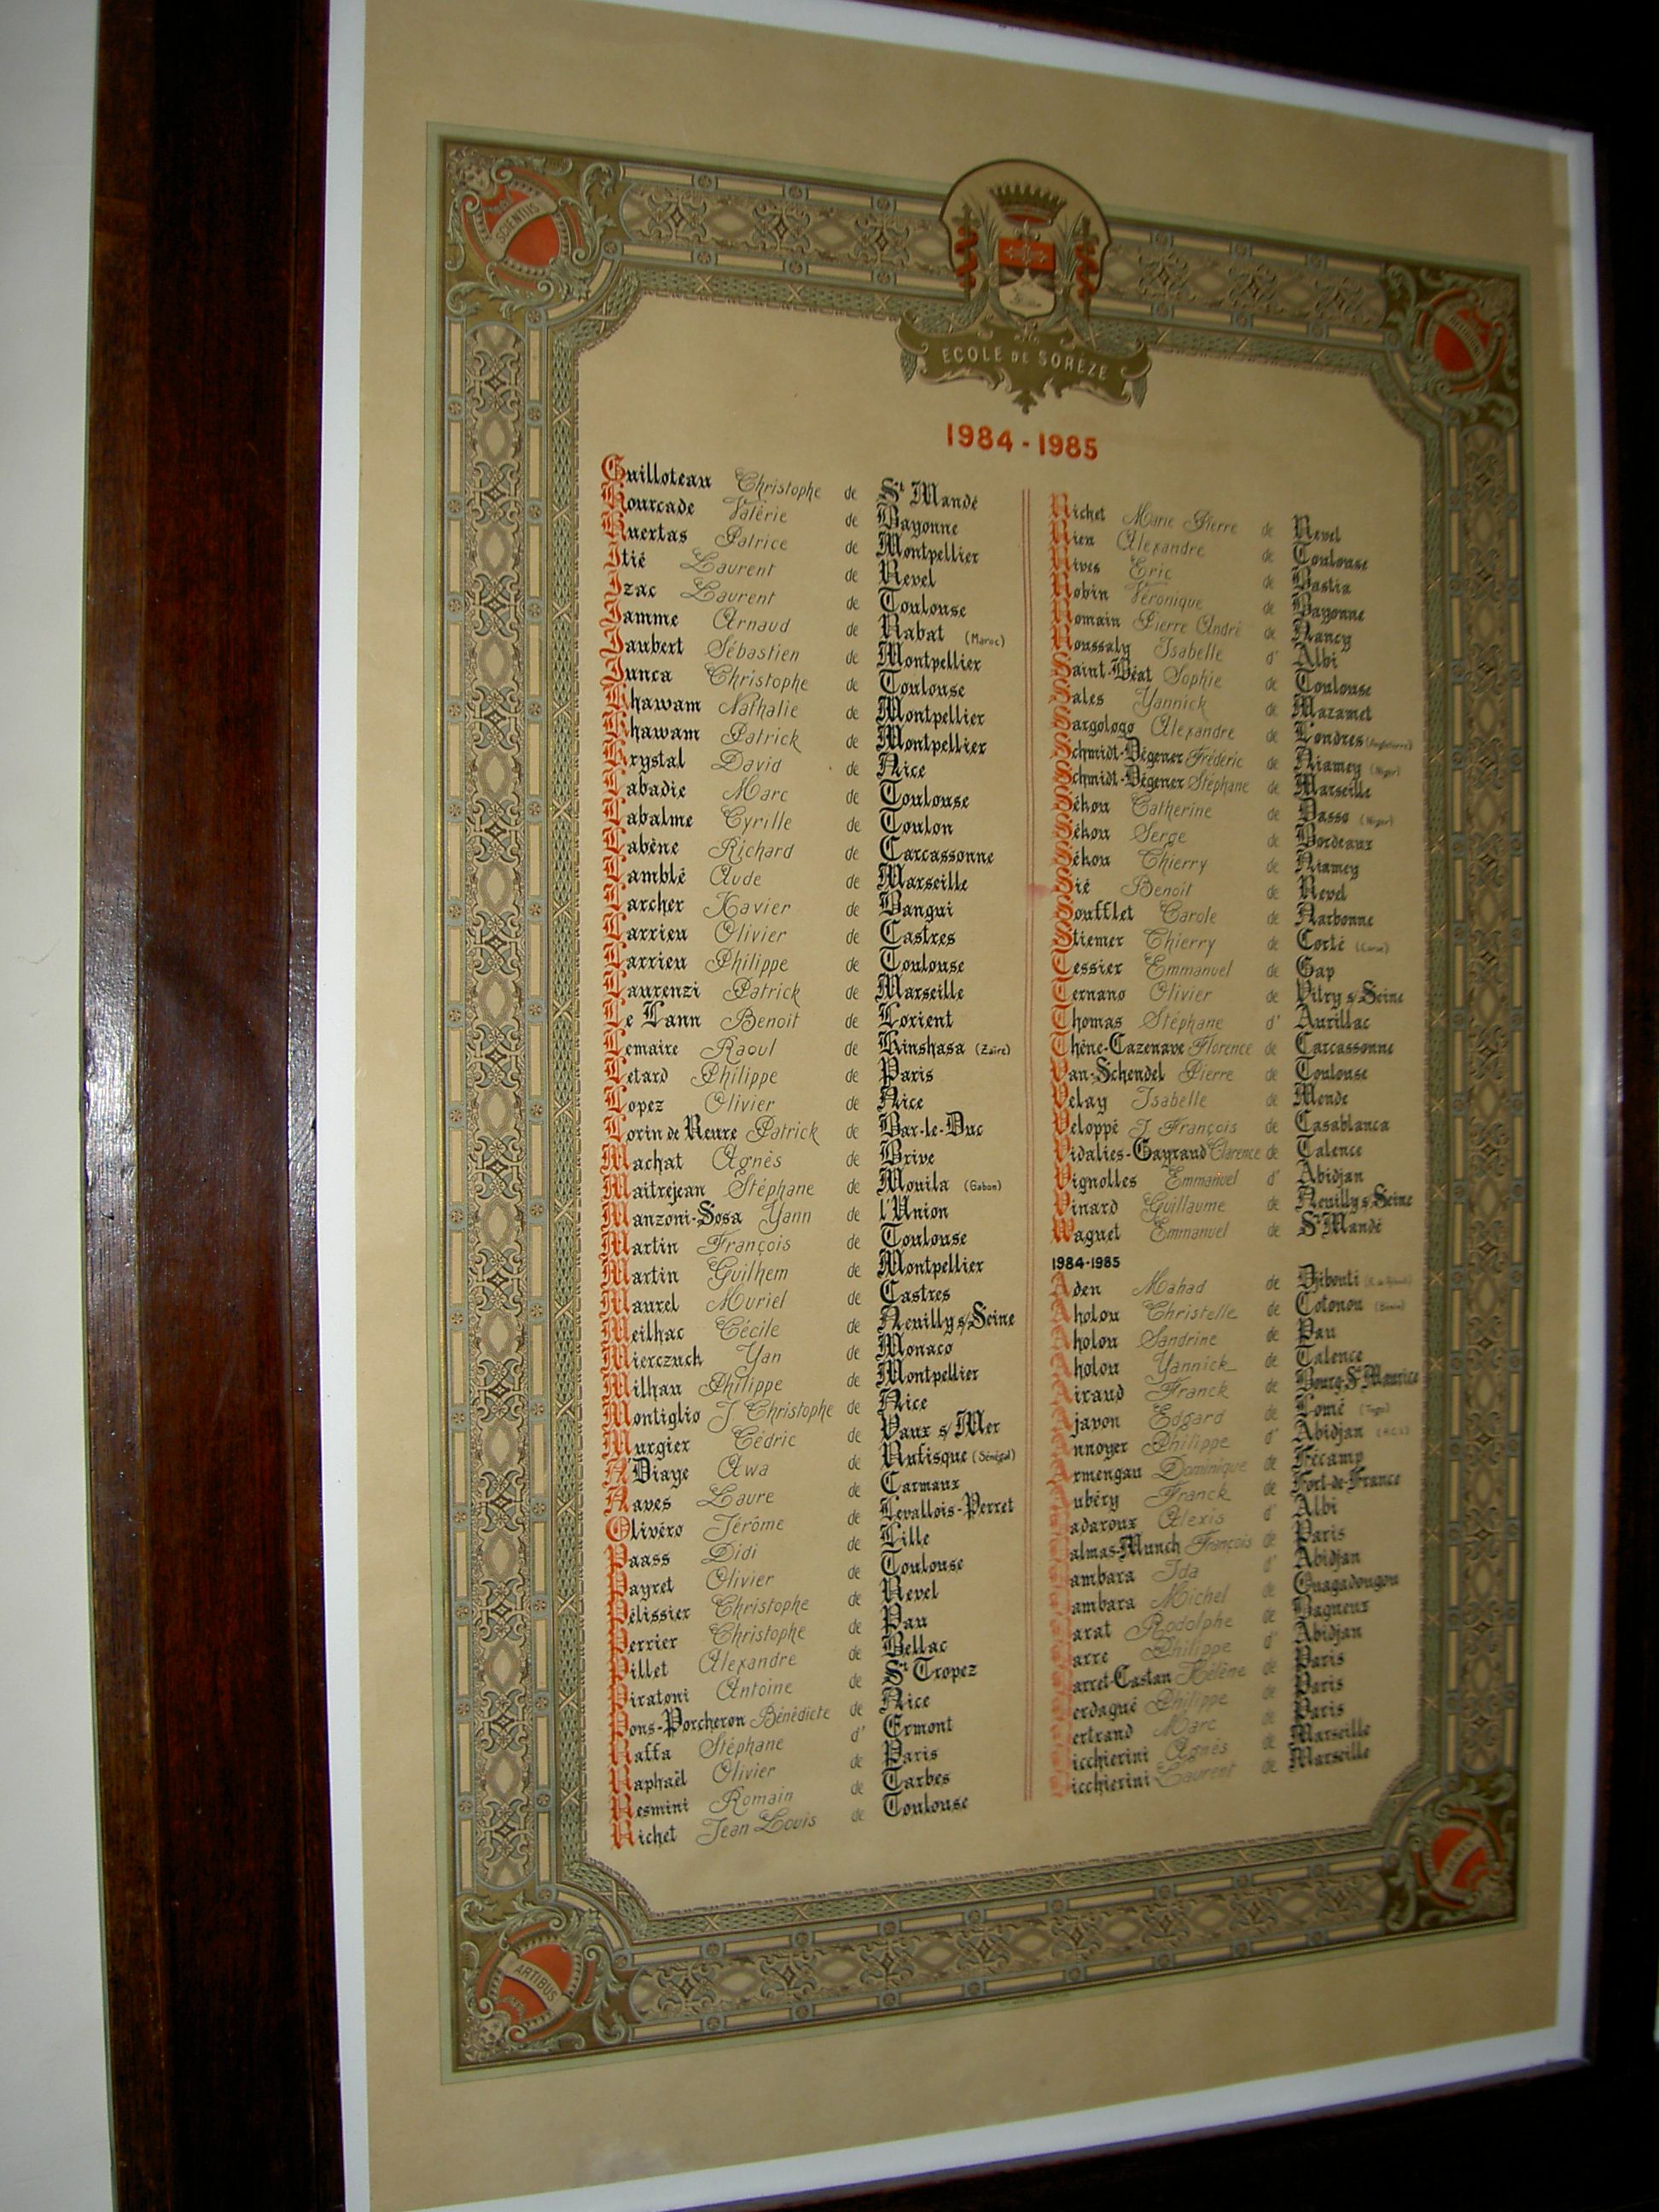 SCIENTIIS
ECOLE DE SORÈZE
1984 - 1985
Guilloteau Christophe de St Mandé
Hourcade Valérie de Bayonne
Huertas Patrice de Montpellier
Itié Laurent de Revel
Izac Laurent de Toulouse
Jamme Arnaud de Rabat (Maroc)
Jaubert Sébastien de Montpellier
Junca Christophe de Toulouse
Khawam Nathalie de Montpellier
Khawam Patrick de Montpellier
Krystal David de Nice
Labadie Marc de Toulouse
Labalme Cyrille de Toulon
Labène Richard de Carcassonne
Lamblé Aude de Marseille
Larcher Xavier de Bangui
Larrieu Olivier de Castres
Larrieu Philippe de Toulouse
Laurenzi Patrick de Marseille
Le Lann Benoit de Lorient
Lemaire Raoul de Kinshasa (Zaïre)
Letard Philippe de Paris
Lopez Olivier de Nice
Lorin de Reure Patrick de Bar-le-Duc
Machat Agnès de Brive
Maitrejean Stéphane de Mouila (Gabon)
Manzoni-Sosa Yann de l'Union
Martin François de Toulouse
Martin Guilhem de Montpellier
Maurel Muriel de Castres
Meilhac Cécile de Neuilly s/Seine
Mierczuch Yan de Monaco
Milhau Philippe de Montpellier
Montiglio J Christophe de Nice
Murgier Cédric de Vaux s/Mer
N'Diaye Awa de Rufisque (Sénégal)
Naves Laure de Carmaux
Olivéro Jérôme de Levallois-Perret
Paass Didi de Lille
Payret Olivier de Toulouse
Pélissier Christophe de Revel
Perrier Christophe de Pau
Pillet Alexandre de Bellac
Piratoni Antoine de St Tropez
Pons-Porcheron Bénédicte de Nice
Raffa Stéphane d' Ermont
Raphaël Olivier de Paris
Resmini Romain de Tarbes
Richet Jean Louis de Toulouse
Richet Marie Pierre de Revel
Rieu Alexandre de Toulouse
Rives Eric de Bastia
Robin Véronique de Bayonne
Romain Pierre André de Nancy
Roussaly Isabelle d' Albi
Saint-Béat Sophie de Toulouse
Sales Yannick de Mazamet
Sargologo Alexandre de Londres (Angleterre)
Schmidt-Dégener Frédéric de Niamey (Niger)
Schmidt-Dégener Stéphane de Marseille
Sékou Catherine de Dosso (Niger)
Sékou Serge de Bordeaux
Sékou Thierry de Niamey
Sié Benoit de Revel
Soufflet Carole de Narbonne
Stiemer Thierry de Corté (Corse)
Tessier Emmanuel de Gap
Ternano Olivier de Vitry s/Seine
Thomas Stéphane d' Aurillac
Thène-Cazenave Florence de Carcassonne
Van-Schendel Pierre de Toulouse
Velay Isabelle de Mende
Veloppé J. François de Casablanca
Vidalies-Gayraud Clarence de Talence
Vignolles Emmanuel d' Abidjan
Vinard Guillaume de Neuilly s/Seine
Waguet Emmanuel de St Mandé
1984-1985
Aden Mahad de Djibouti
Aholou Christelle de Cotonou (Bénin)
Aholou Sandrine de Pau
Aholou Yannick de Talence
Airaud Franck de Bourg-St Maurice
Ajavon Edgard de Lomé (Togo)
Annoyer Philippe d' Abidjan (R.C.I)
Armengau Dominique de Fécamp
Aubéry Franck de Fort-de-France
Badaroux Alexis d' Albi
Balmas-Munch François de Paris
Bambara Ida d' Abidjan
Bambara Michel de Ouagadougou
Barat Rodolphe de Bagneux
Barre Philippe d' Abidjan
Barret-Castan Hélène de Paris
Berdagué Philippe de Paris
Bertrand Marc de Paris
Bicchierini Agnès de Marseille
Bicchierini Laurent de Marseille
ARTIBUS